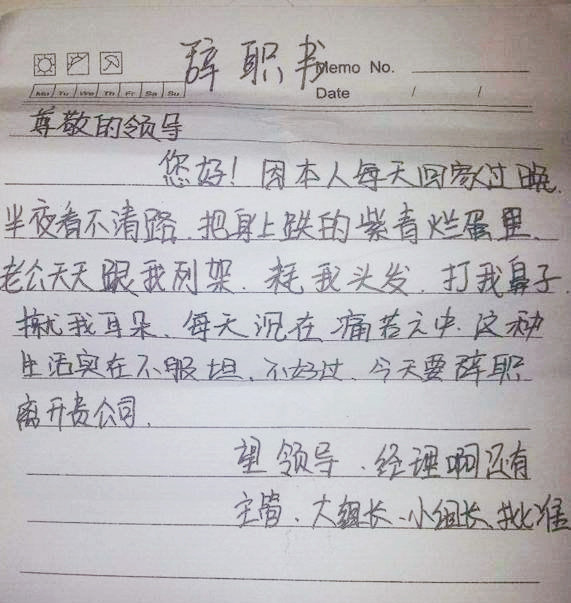 辞职书
Memo No.
Mo Tu We Th Fr Sa Su
Date / /
尊敬的领导
您好！因本人每天回家过晚.
半夜看不清路.把身上跌的紫青烂蛋里.
老公天天跟我列架.耗我头发.打我鼻子.
揪我耳朵.每天沉在痛苦之中.这种
生活实在不服坦.不好过.今天要辞职
离开贵公司.
望领导.经理啊还有
主管.大组长.小组长.批准